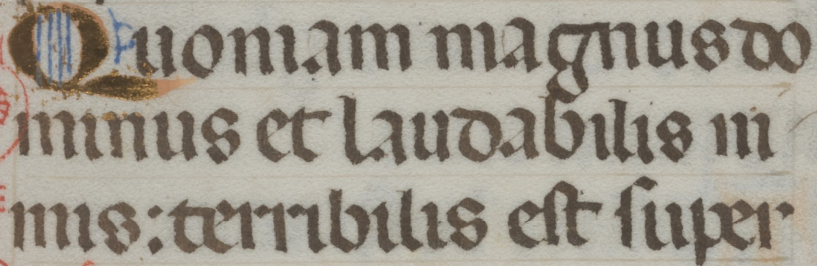 Quoniam magnus do
minus et laudabilis ni
mis: terribilis est super